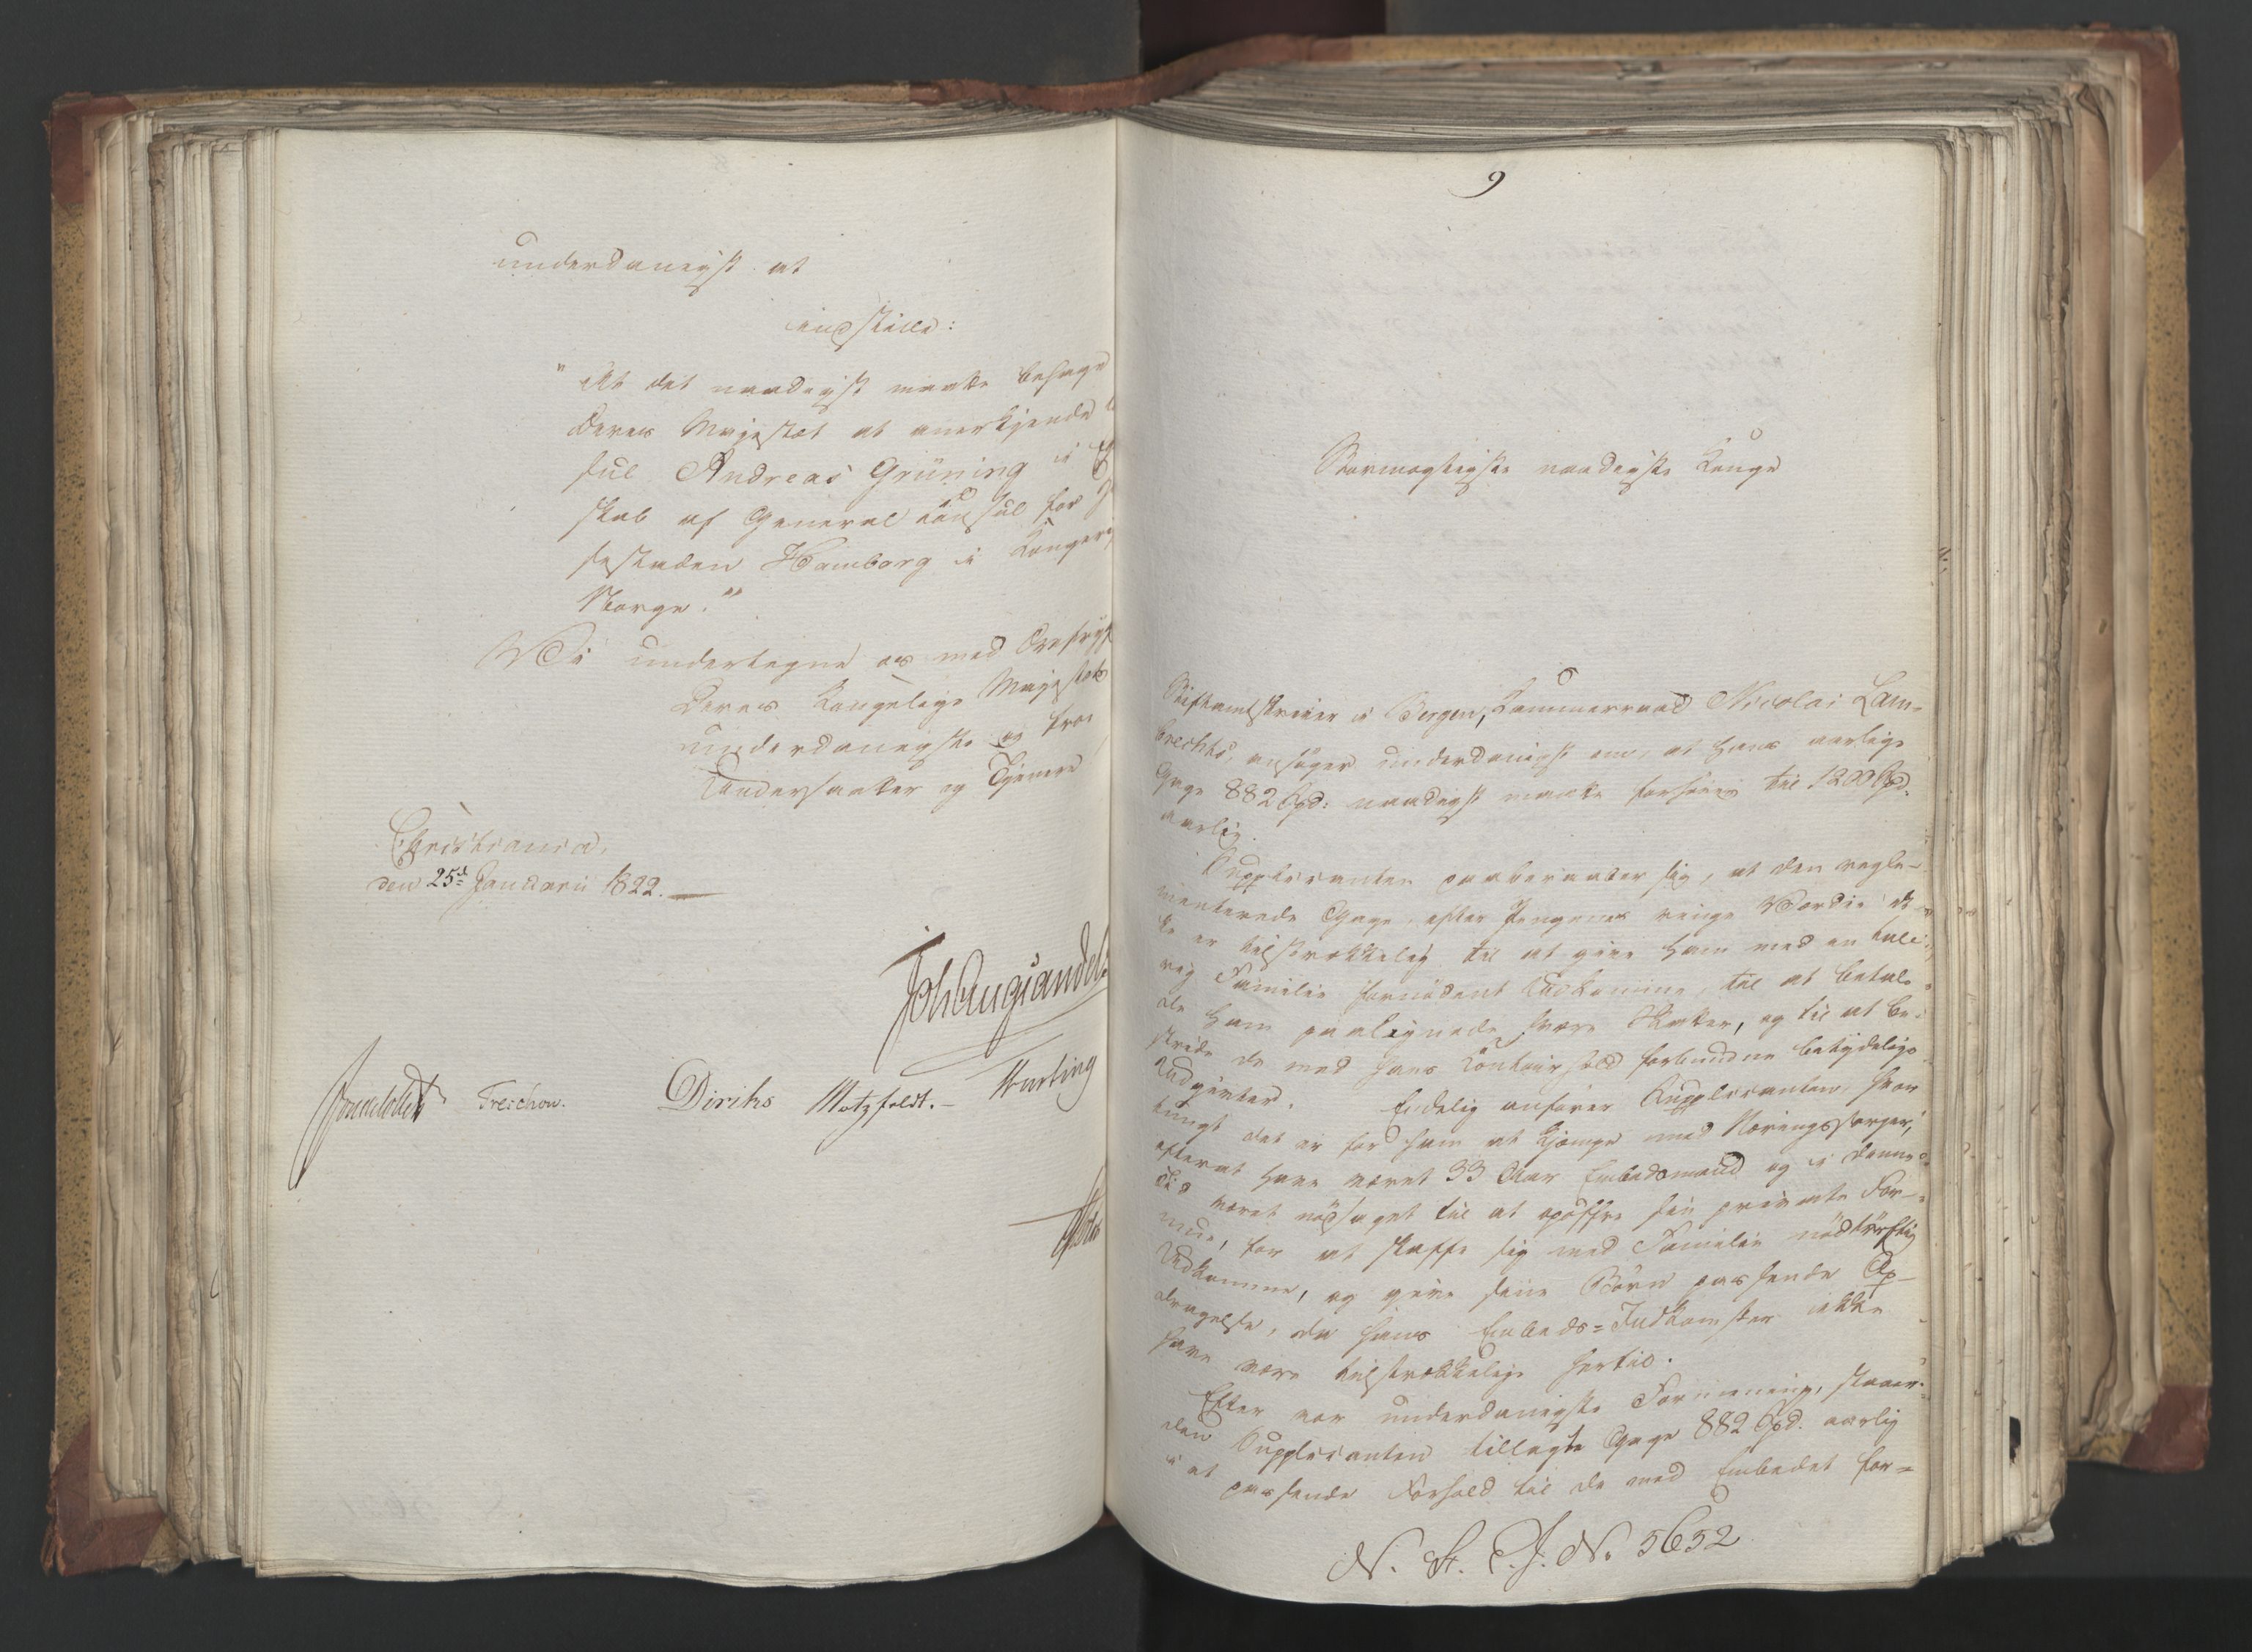 underdanigst at
indstille:
"At det naadigst maatte behage
Deres Majestæt at anerkjende
sul Andreas Grüning i
skab af General Consul for
sestaden Hamborg i Konger
Norge."
Vi undertegne os med Dybeste
Deres Kongelige Majestæts
underdanigste og troe
Undersaatter og Tjenere
Christiania,
den 25de Januarii 1822.
Joh Aug Sandels
Sommerhielm Treschow. Diriks Motzfeldt. Hurting
Holst
9
Stormægtigste naadigste Konge
Stiftamtskriver i Bergen, Kammerraad Nicolai Lam-
brechts, ansøger underdanigst om, at hans aarlige
Gage 882 Spd: naadigst maatte forhøies til 1200 Spd.
aarlig.
Supplicanten paaberaaber sig, at den regle-
menterede Gage, efter Pengenes ringe Værdie ik-
ke er tilstrækkelig til at give ham med en tal-
rig Familie fornødent Udkomme, til at betale
de ham paalignede svære Skatter, og til at be-
stride de med hans Contoirhold forbundne betydelige
Udgifter. Endelig anfører Supplicanten, hvor
tungt det er for ham at kjæmpe med Næringssorger,
efterat have været 33 Aar Embedsmand og i denne
Tid været nødsaget til at opoffre sin private For-
mue, for at skaffe sig med Familie nødtørftig
Udkomme, og give sine Børn passende Op-
dragelse, da hans Embeds=Indkomster ikke
have være tilstrækkelige hertil.
Efter vor underdanigste Formening, staaer
den Supplicanten tillagte Gage 882 Spd. aarlig
i et passende Forhold til de med Embedet for=
N. St. E. J. No 5652